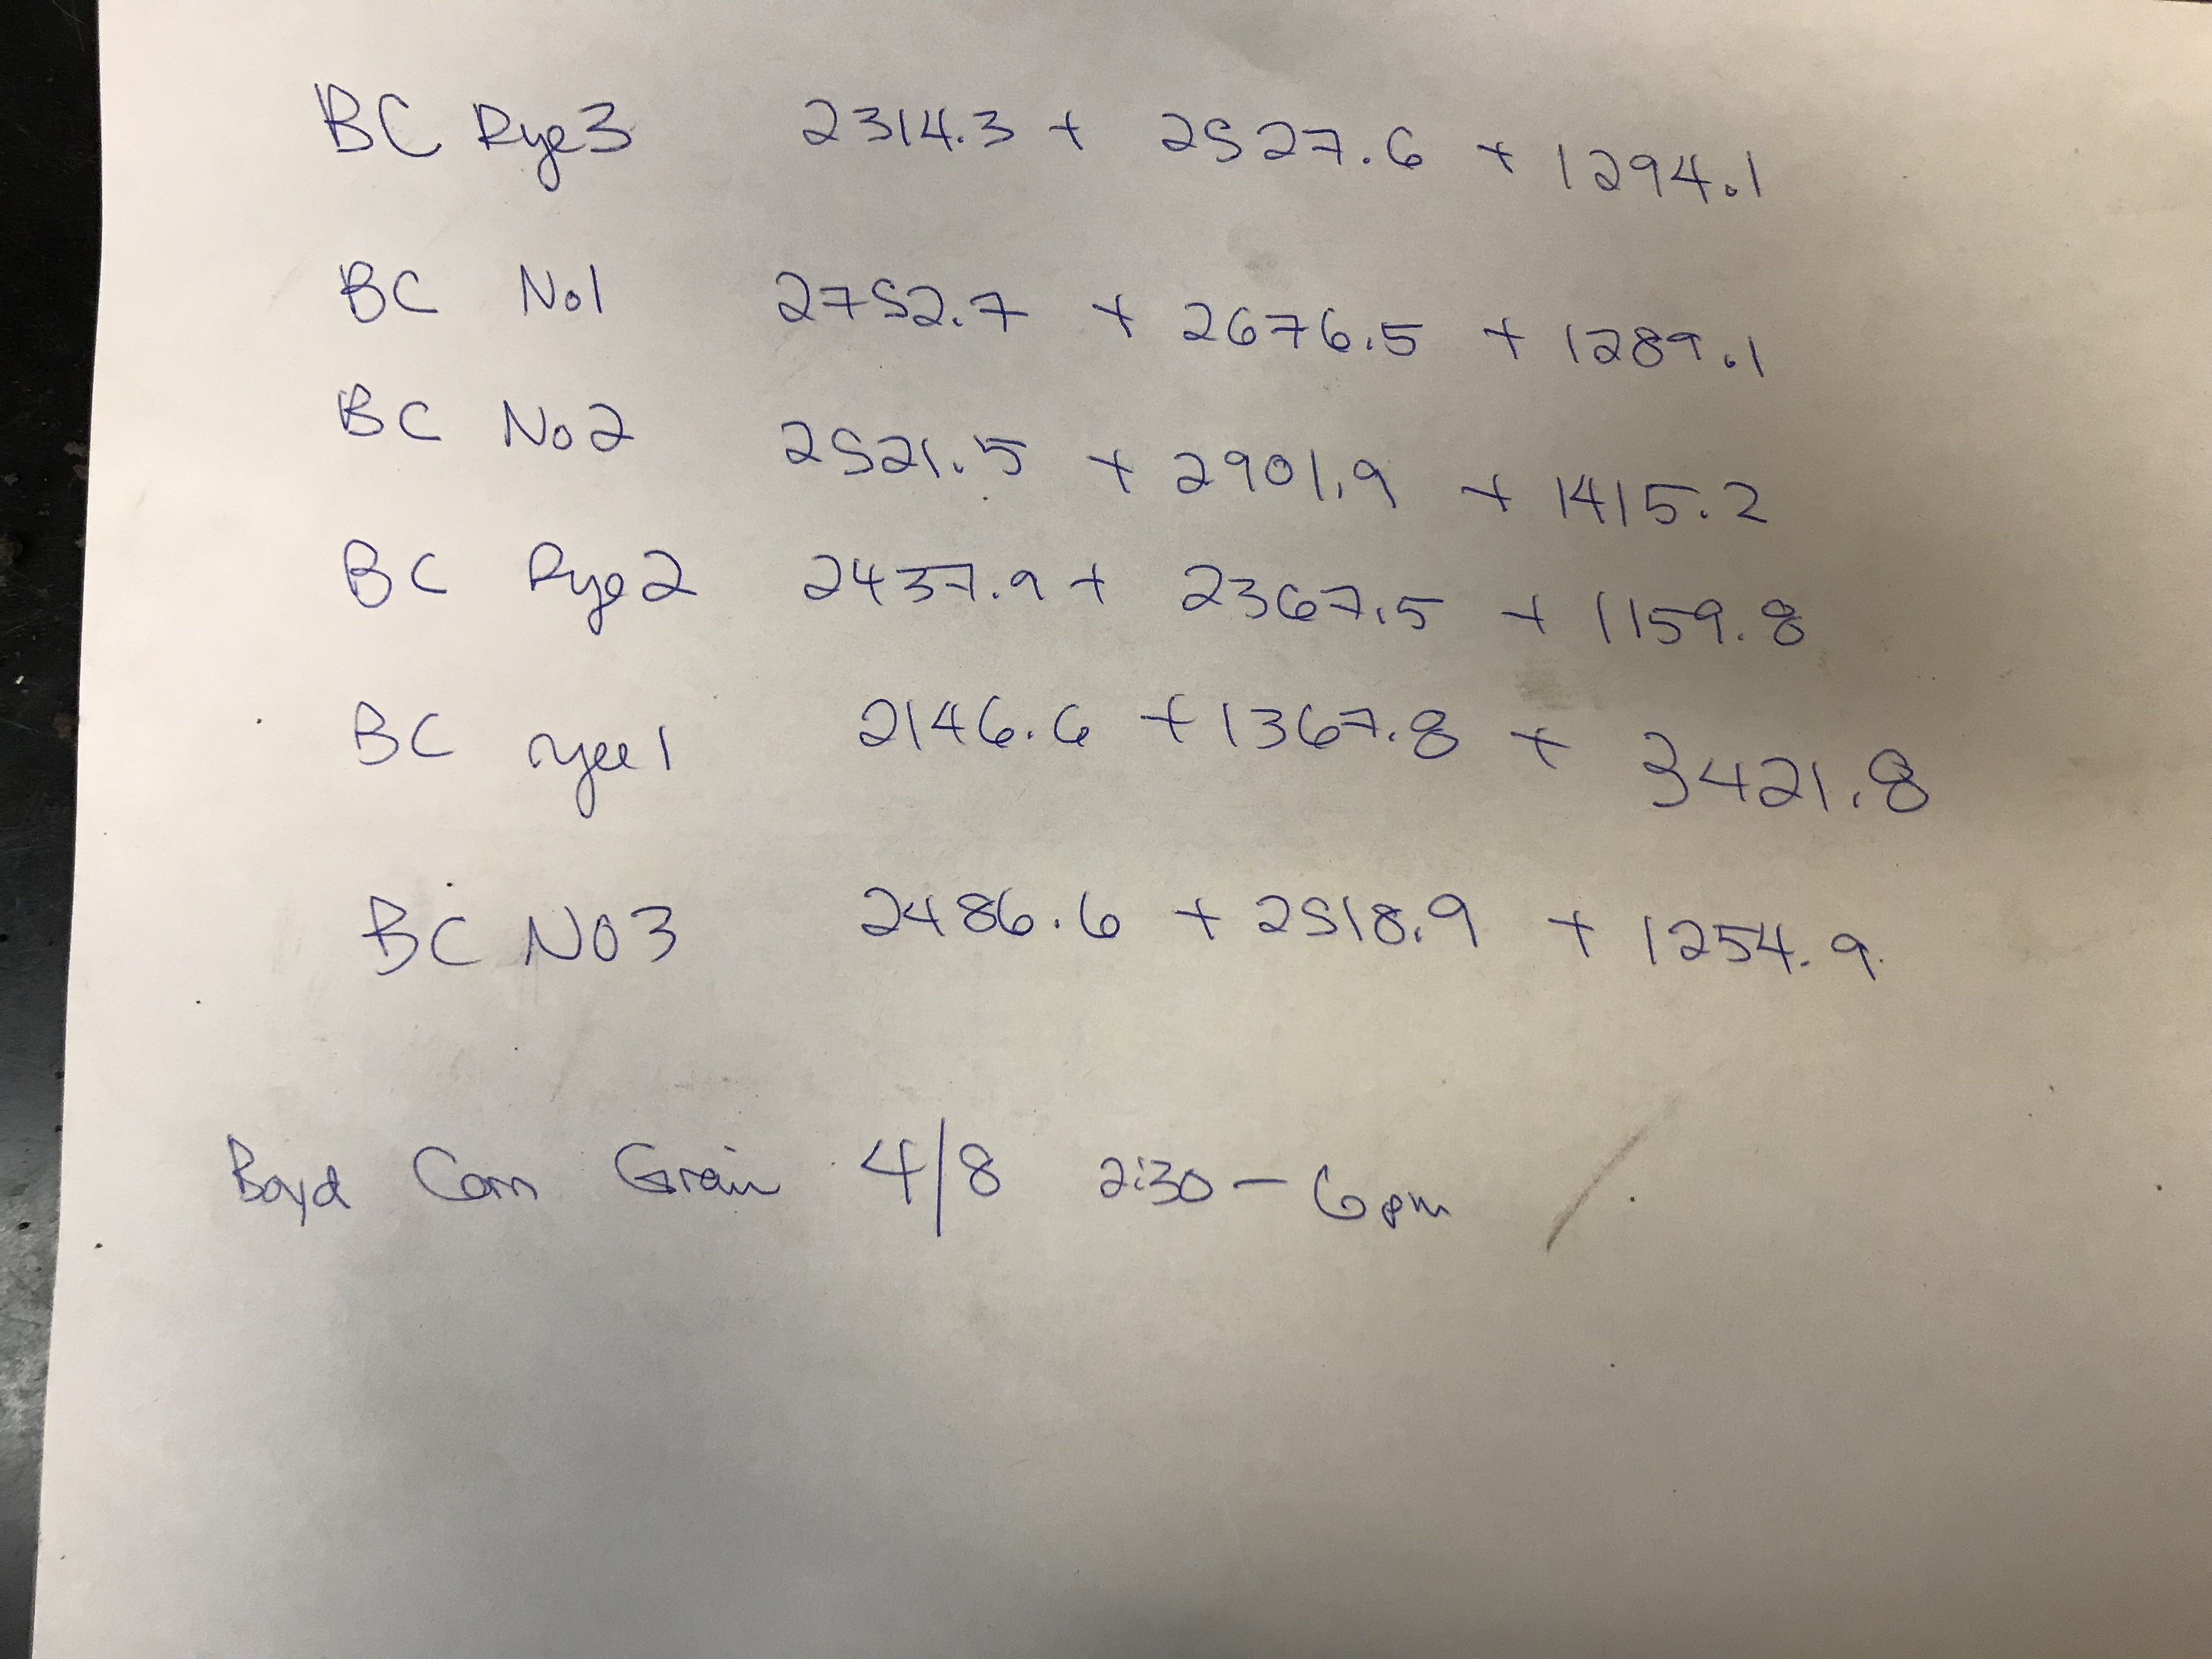 BC Rye3 2314.3 + 2527.6 + 1294.1
BC No1 2752.7 + 2676.5 + 1289.1
BC No2 2521.5 + 2901.9 + 1415.2
BC Rye2 2437.9 + 2367.5 + 1159.8
BC rye1 2146.6 + 1367.8 + 3421.8
BC NO3 2486.6 + 2518.9 + 1254.9
Boyd Corn Grain 4/8 2:30 - 6pm